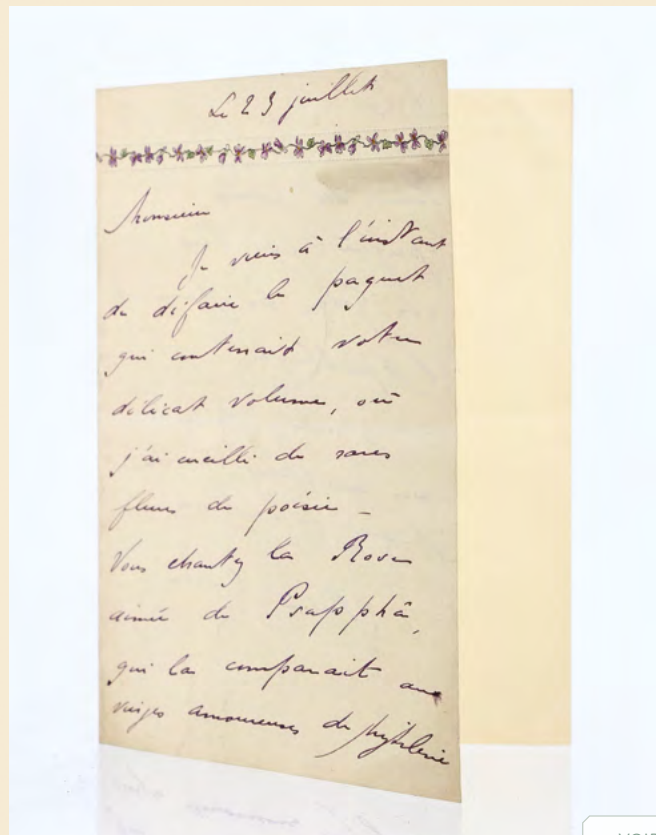 Le 23 juillet
Monsieur
Je viens à l'instant
de défaire le paquet
qui contenait votre
délicat volume, où
j'ai cueilli de rares
fleurs de poésie –
Vous chantez la Rose
aimée de Psapphâ,
qui la comparait aux
vierges amoureuses de Mytilène